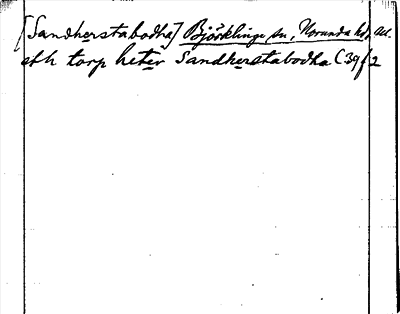 [Sandherstabodha] Björklinge sn, Norunda hd,
eth torp heter Sandherstabodha C39f2